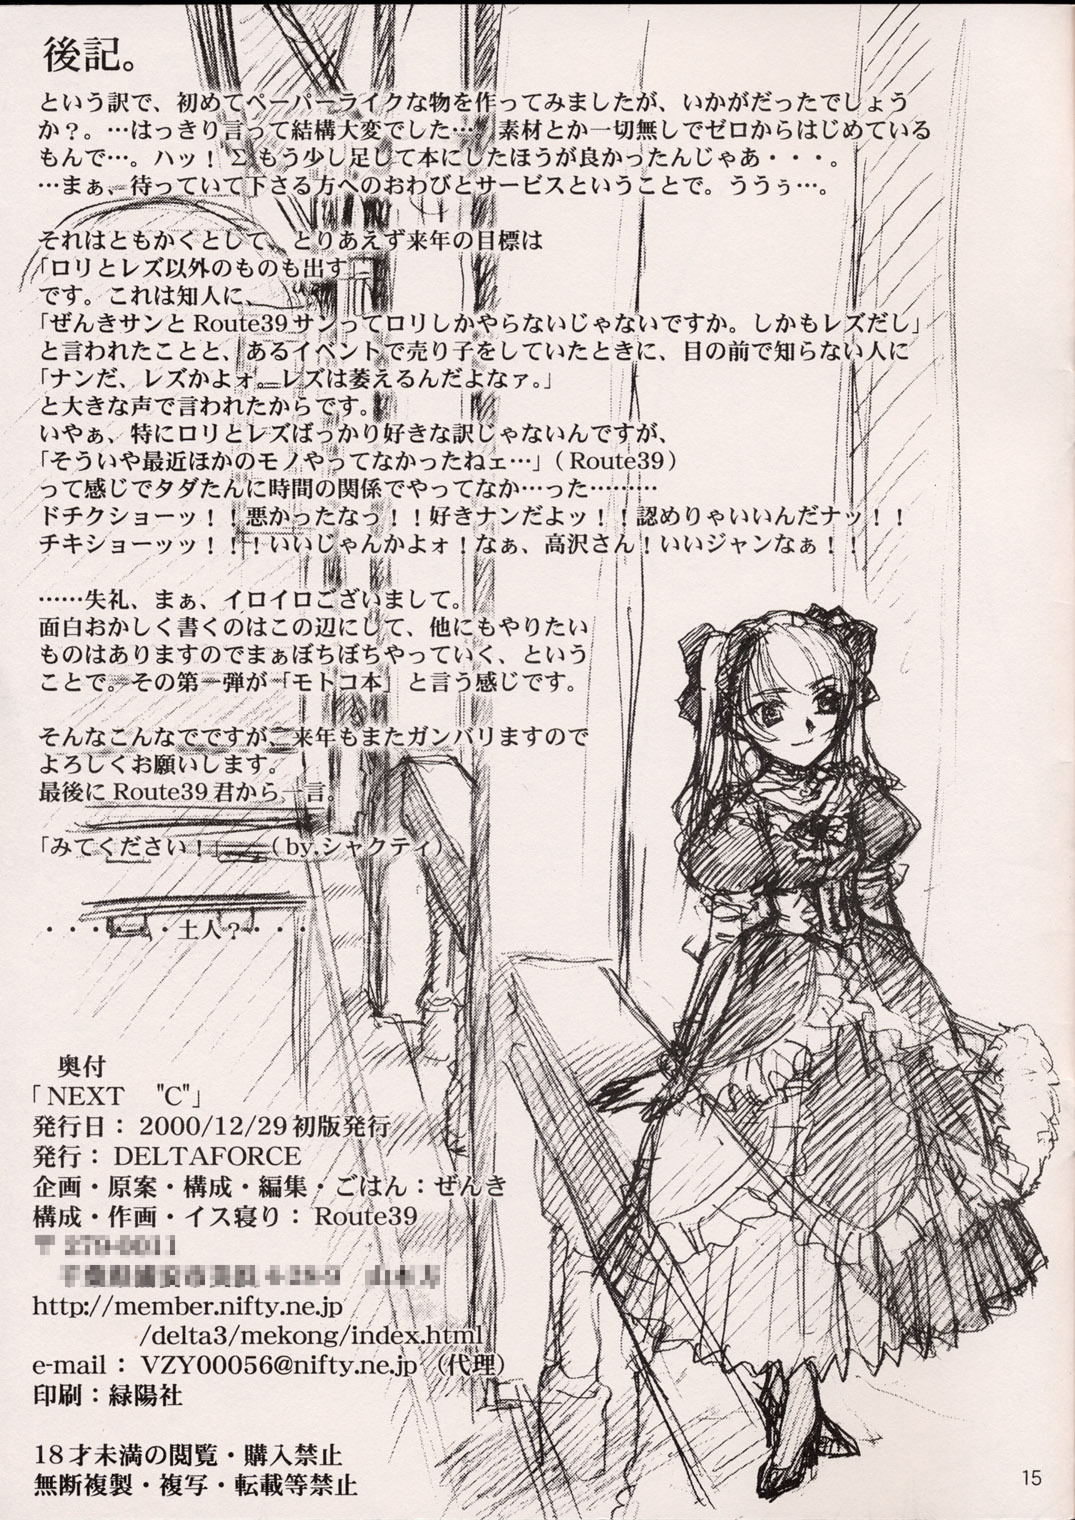 後記。
という訳で、初めてペーパーライクな物を作ってみましたが、いかがだったでしょう
か?。…はっきり言って結構大変でした…。素材とか一切無しでゼロからはじめている
もんで…。ハッ! Σもう少し足して本にしたほうが良かったんじゃあ・・・。
…まぁ、待っていて下さる方へのおわびとサービスということで。ううぅ…。
それはともかくとして、とりあえず来年の目標は
「ロリとレズ以外のものも出す」
です。これは知人に、
「ぜんきサンと Route39 サンってロリしかやらないじゃないですか。しかもレズだし」
と言われたことと、あるイベントで売り子をしていたときに、目の前で知らない人に
「ナンだ、レズかよォ。レズは萎えるんだよなァ。」
と大きな声で言われたからです。
いやぁ、特にロリとレズばっかり好きな訳じゃないんですが、
「そういや最近ほかのモノやってなかったねェ…」(Route39)
って感じでタダたんに時間の関係でやってなか…った………
ドチクショーッ!!悪かったなっ!!好きナンだよッ!!認めりゃいいんだナッ!!
チキショーッッ!!!いいじゃんかよォ!なぁ、高沢さん!いいジャンなぁ!!
……失礼、まぁ、イロイロございまして。
面白おかしく書くのはこの辺にして、他にもやりたい
ものはありますのでまぁぼちぼちやっていく、という
ことで。その第一弾が「モトコ本」と言う感じです。
そんなこんなでですが、来年もまたガンバリますので
よろしくお願いします。
最後に Route39 君から一言。
「みてください!」 (by.シャクティ)
・・・・・・土人?・・・
奥付
「NEXT "C"」
発行日: 2000/12/29 初版発行
発行: DELTAFORCE
企画・原案・構成・編集・ごはん:ぜんき
構成・作画・イス寝り: Route39
http://member.nifty.ne.jp
/delta3/mekong/index.html
e-mail : VZY00056@nifty.ne.jp (代理)
印刷:緑陽社
18才未満の閲覧・購入禁止
無断複製・複写・転載等禁止
15